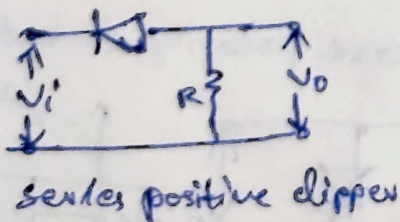 Vi
R
Vo
series positive clipper